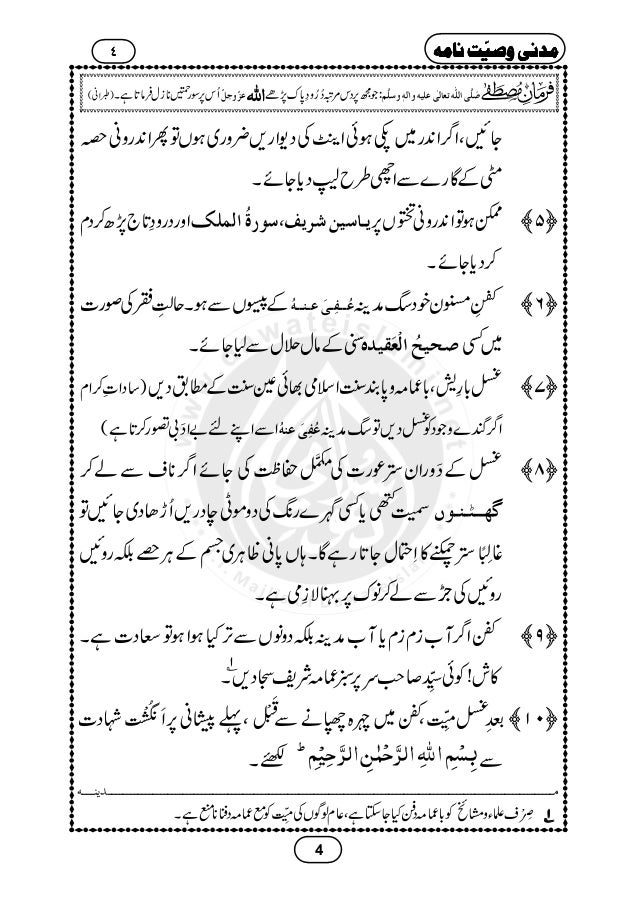 مدنی وصیّت نامہ
٤
فرمانِ مصطفٰے صلَّی اللہ تعالٰی علیہ واٰلہٖ وسلَّم: جو مجھ پر دس مرتبہ دُرُودِ پاک پڑھے اللہ عزَّوجلَّ اُس پر سو رحمتیں نازل فرماتا ہے۔ (طبرانی)
جائیں، اگر اندر میں پکی ہوئی اینٹ کی دیواریں ضروری ہوں تو پھر اندرونی حصہ
مٹی کے گارے سے اچھی طرح لیپ دیا جائے۔
﴿٥﴾ ممکن ہو تو اندرونی تختوں پر یاسین شریف، سورۃُ الملک اور درودِ تاج پڑھ کر دم
کر دیا جائے۔
﴿٦﴾ کفنِ مسنون خود سگِ مدینہ عُفِیَ عنہُ کے پیسوں سے ہو۔ حالتِ فقر کی صورت
میں کسی صحیحُ الْعَقِیدہ سنی کے مالِ حلال سے لیا جائے۔
﴿٧﴾ غسل باریش، باعمامہ و پابندِ سنت اسلامی بھائی عین سنت کے مطابق دیں (ساداتِ کرام
اگر گندے وجود کو غسل دیں تو سگِ مدینہ عُفِیَ عنہُ اسے اپنے لئے بے ادَبی تصور کرتا ہے)
﴿٨﴾ غسل کے دَوران سترِ عورت کی مکمَّل حفاظت کی جائے اگر ناف سے لے کر
گھٹنوں سمیت کتھئی یا کسی گہرے رنگ کی دو موٹی چادریں اُڑھا دی جائیں تو
غالِباً ستر چمکنے کا اِحتمال جاتا رہے گا۔ ہاں پانی ظاہری جسم کے ہر حصے بلکہ روئیں
روئیں کی جڑ سے لے کر نوک پر بہنا لازِمی ہے۔
﴿٩﴾ کفن اگر آبِ زم زم یا آبِ مدینہ بلکہ دونوں سے تر کیا ہوا ہو تو سعادت ہے۔
کاش! کوئی سیِّد صاحب سر پر سبز عمامہ شریف سجا دیں۔؎۱
﴿١٠﴾ بعدِ غسلِ میّت، کفن میں چہرہ چھپانے سے قَبْل، پہلے پیشانی پر اَنگُشْتِ شہادت
سے بِسْمِ اللّٰہِ الرَّحْمٰنِ الرَّحِیْمِ ؕ لکھئے۔
مدینہ
؎۱ صِرْف علماء و مشائخ کو باعمامہ دفن کیا جا سکتا ہے، عام لوگوں کی میّت کو مع عمامہ دفنانا منع ہے۔
4